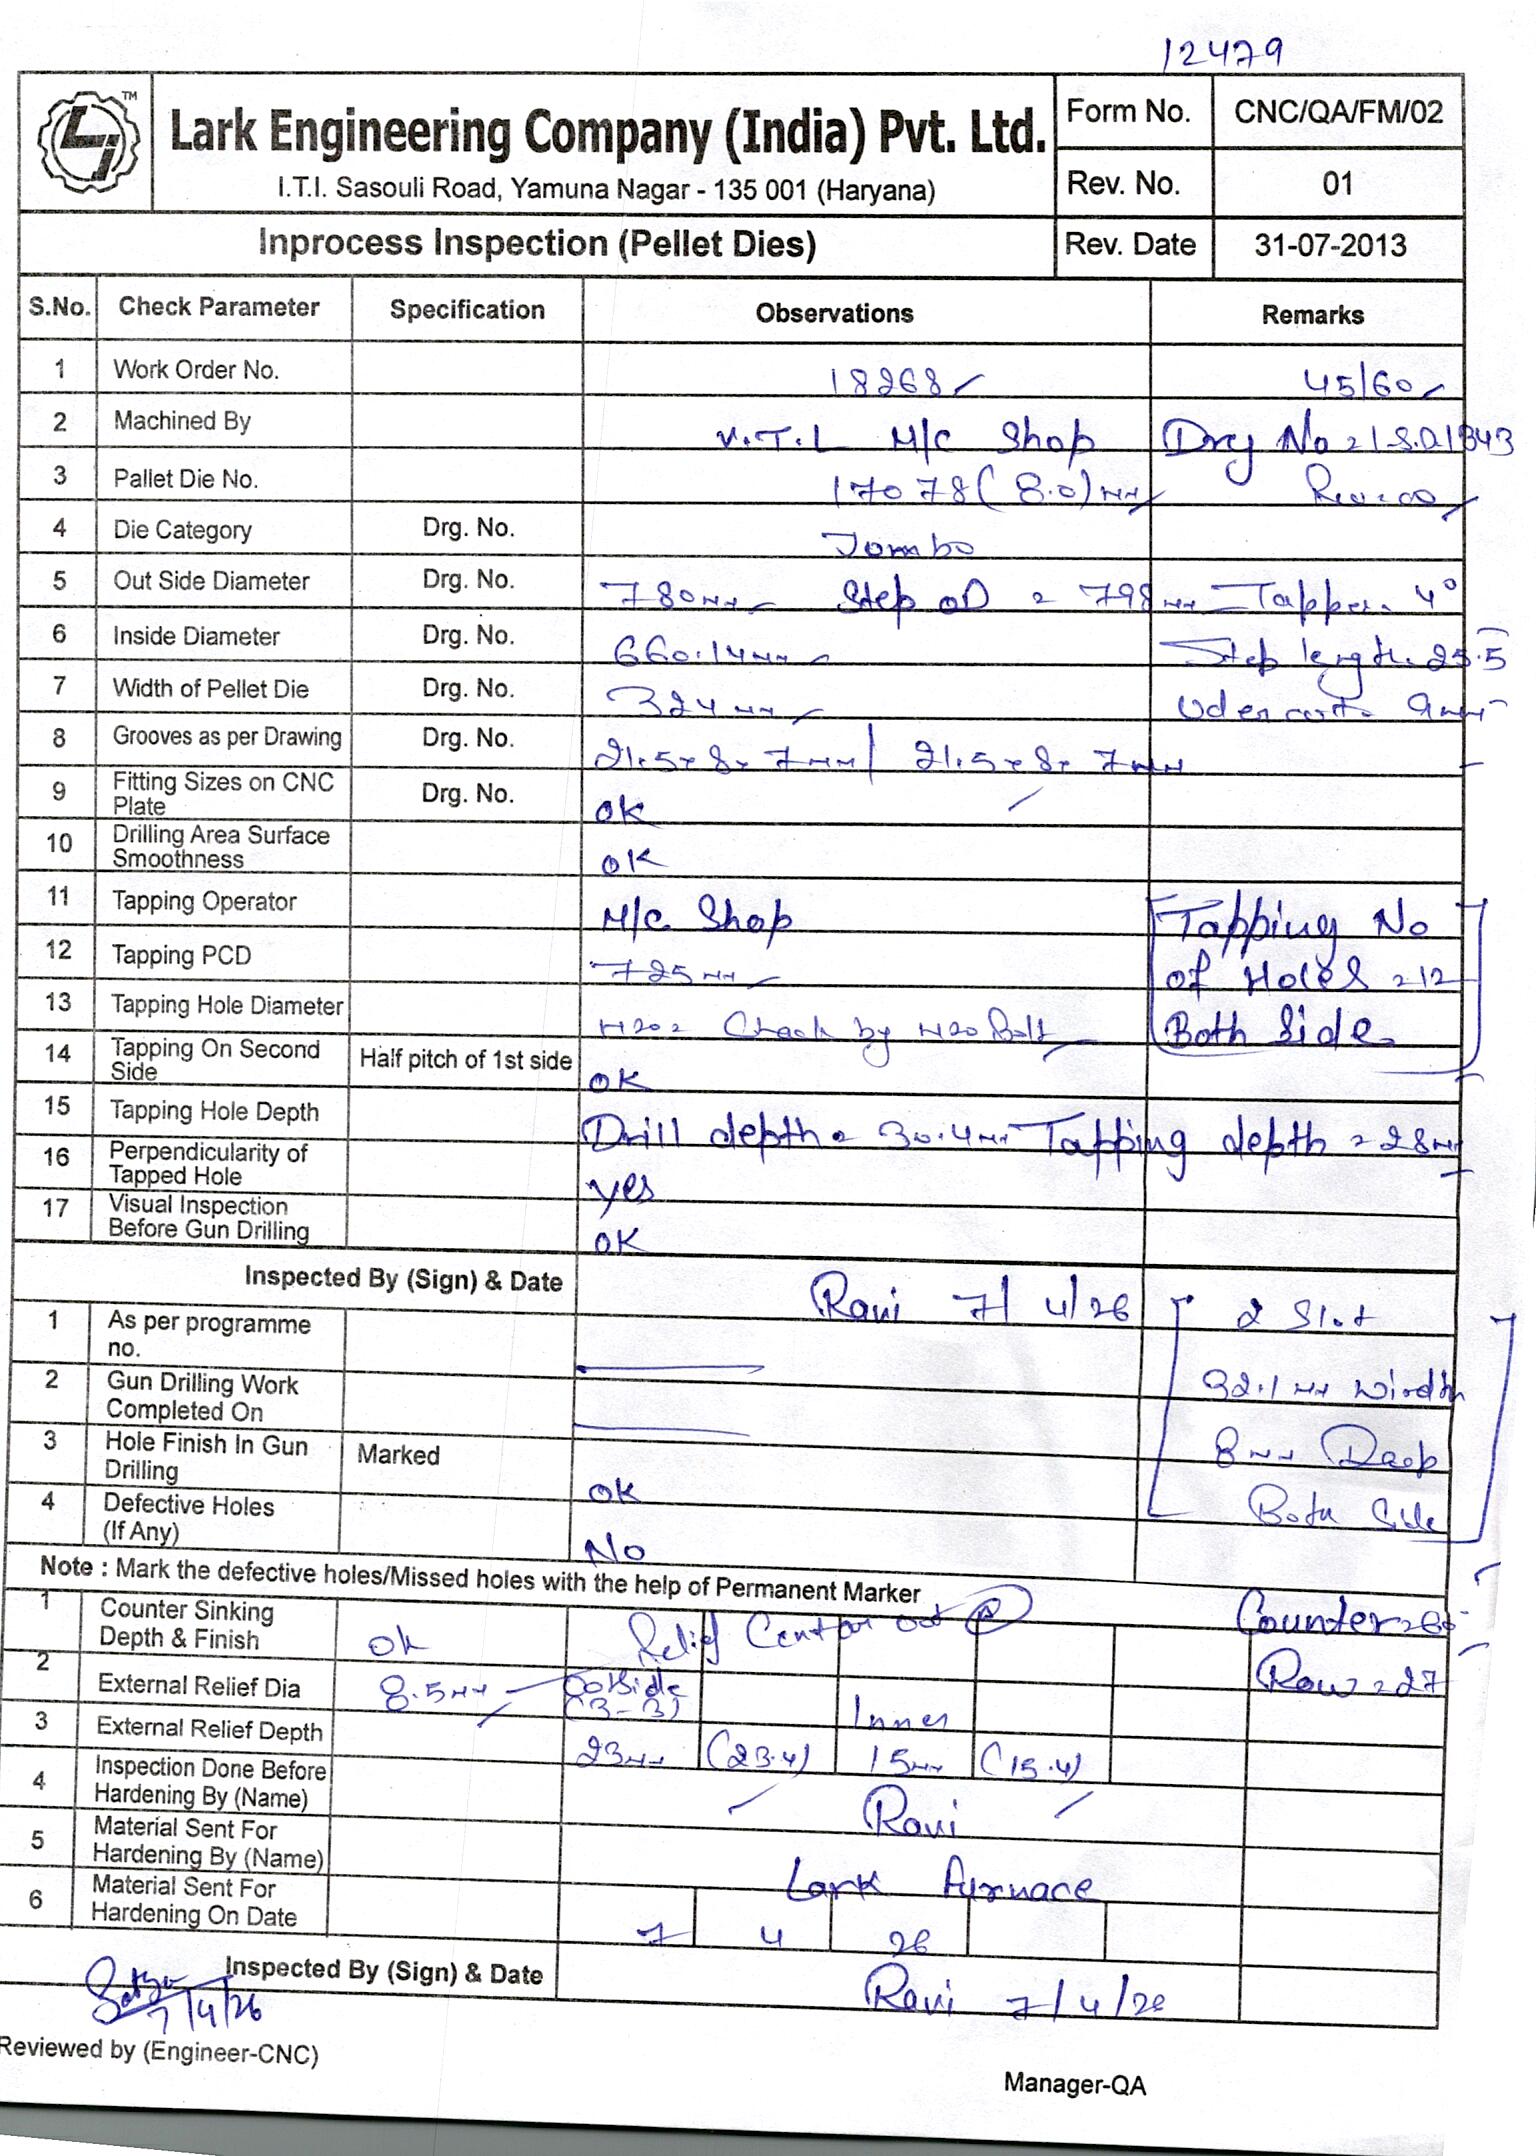 12479
TM
Lark Engineering Company (India) Pvt. Ltd.
I.T.I. Sasouli Road, Yamuna Nagar - 135 001 (Haryana)
Form No. CNC/QA/FM/02
Rev. No. 01
Inprocess Inspection (Pellet Dies) Rev. Date 31-07-2013
S.No. Check Parameter Specification Observations Remarks
1 Work Order No. 18268 45/60
2 Machined By V.T.L M/C Shop Drg No
3 Pallet Die No. 17078 (8.0)
4 Die Category Drg. No. Jombo
5 Out Side Diameter Drg. No. 780mm Step OD = 798mm Tapper 4°
6 Inside Diameter Drg. No. 660.14mm Step length 25.5
7 Width of Pellet Die Drg. No. 324mm
8 Grooves as per Drawing Drg. No. 21.5 x 8 x 7mm / 21.5 x 8 x 7mm
9 Fitting Sizes on CNC Plate Drg. No. OK
10 Drilling Area Surface Smoothness OK
11 Tapping Operator M/C Shop Tapping No
12 Tapping PCD 725mm of Holes = 12
13 Tapping Hole Diameter M20 = Check by M20 Bolt Both Side
14 Tapping On Second Side Half pitch of 1st side OK
15 Tapping Hole Depth Drill depth = 30.4mm Tapping depth = 28mm
16 Perpendicularity of Tapped Hole yes
17 Visual Inspection Before Gun Drilling OK
Inspected By (Sign) & Date Ravi 7/4/26 2 Slot
1 As per programme no.
2 Gun Drilling Work Completed On 32.1mm width
3 Hole Finish In Gun Drilling Marked OK 8mm Deep
4 Defective Holes (If Any) No Both Side
Note : Mark the defective holes/Missed holes with the help of Permanent Marker
1 Counter Sinking Depth & Finish Ok Relief Counter = 60°
2 External Relief Dia 8.5mm outside (3-3) Inner Row = 27
3 External Relief Depth 23mm (23.4) 15mm (15.4)
4 Inspection Done Before Hardening By (Name) Ravi
5 Material Sent For Hardening By (Name) Lark furnace
6 Material Sent For Hardening On Date 7 4 26
Inspected By (Sign) & Date Ravi 7/4/26
7/4/26
Reviewed by (Engineer-CNC)
Manager-QA